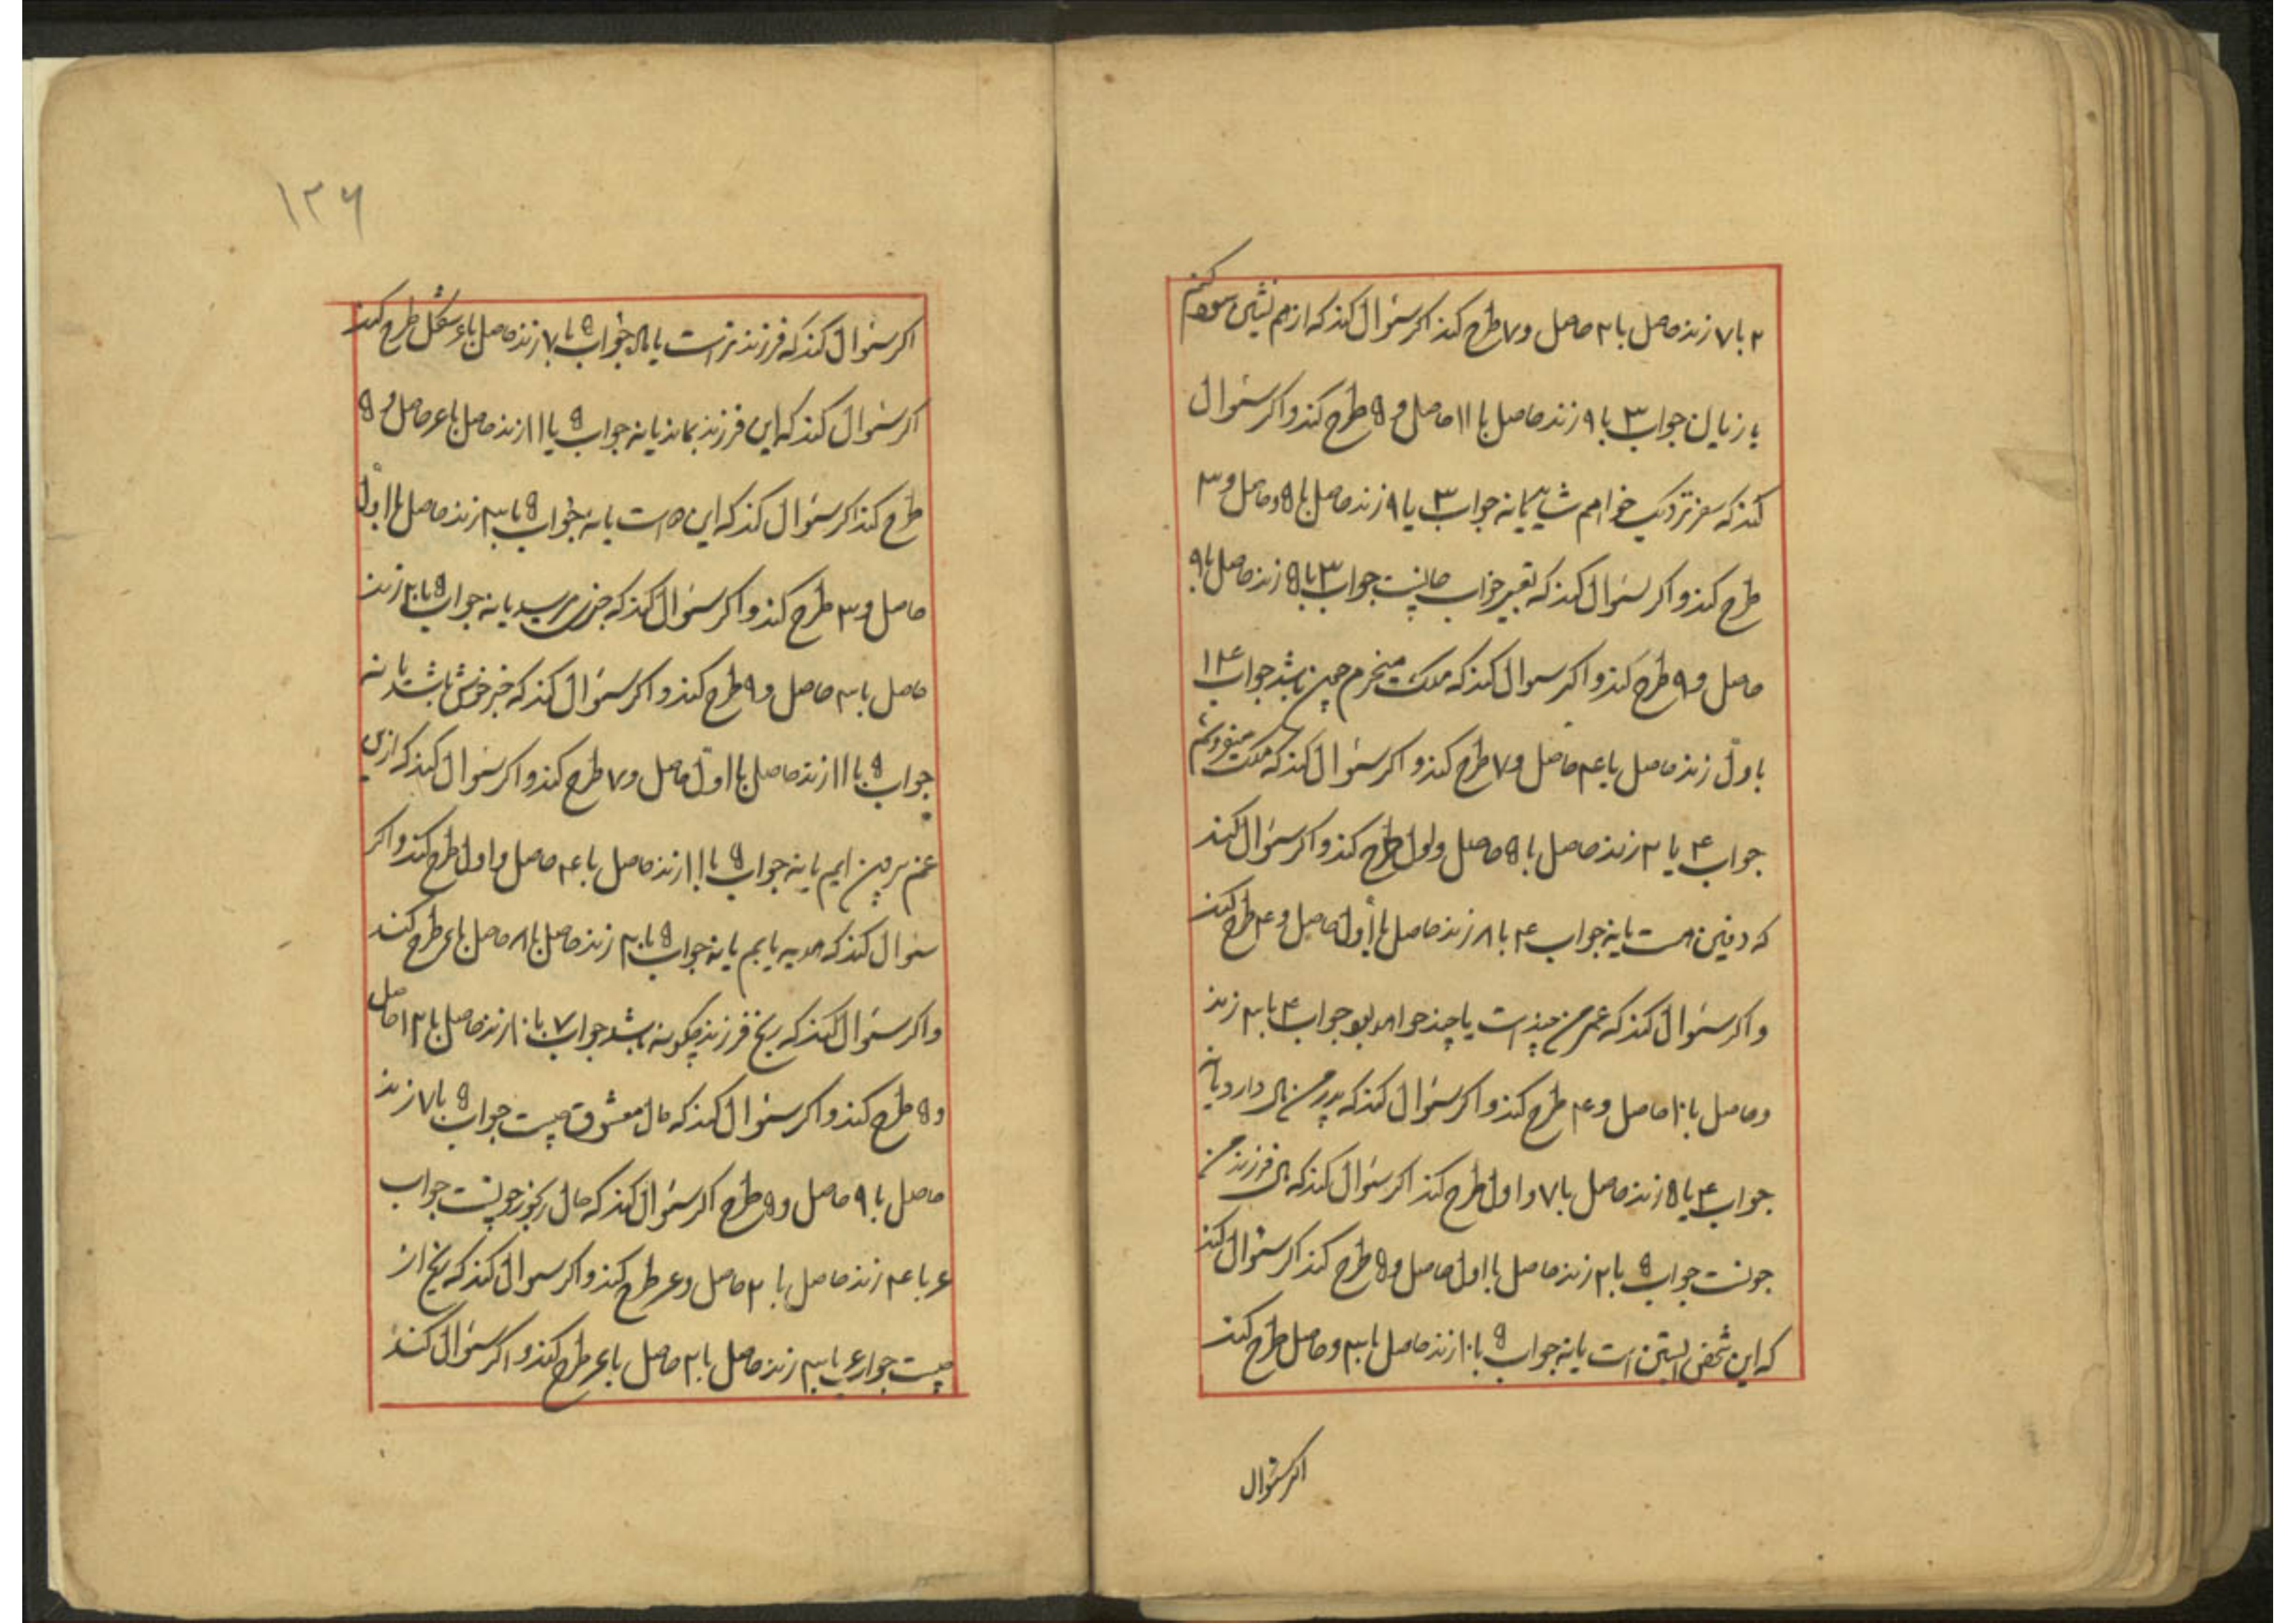 ۲ با ۷ زند حاصل با ۲ حاصل و ۷ طرح کند اکر سؤال کند که از هم نشین سود کنم
یا زیان جواب ۳ با ۹ زند حاصل با ۱۱ حاصل و ۵ طرح کند و اکر سؤال
کند که سفر نزدیک خواهم شد یا نه جواب ۳ با ۹ زند حاصل با ۵ و حاصل و ۳
طرح کند و اکر سؤال کند که تعبیر خواب چیست جواب ۳ با ۵ زند حاصل با ۹
حاصل و ۹ طرح کند و اکر سوال کند که ملک میخرم چون باشد جواب ۴
باول زند حاصل با ۴ حاصل و ۷ طرح کند و اکر سؤال کند که ملک میفروشم
جواب ۴ با ۲ زند حاصل با ۵ حاصل و اول طرح کند و اکر سؤال کند
که دفین هست یا نه جواب ۴ با ۸ زند حاصل با اول حاصل و ۴ طرح کند
و اکر سؤال کند که عمر من چند است یا چند خواهد بود جواب ۴ با ۳ زند
و حاصل با ۱۰ حاصل و ۴ طرح کند و اکر سؤال کند که پدر من مال دارد یا نه
جواب ۴ با ۵ زند حاصل با ۷ و اول طرح کند اکر سؤال کند که فرزند من
چونست جواب ۵ با ۲ زند حاصل با اول حاصل و ۵ طرح کند اکر سؤال کند
که این شخص ابستن است یا نه جواب ۵ با ۱۰ زند حاصل با ۳ و حاصل طرح کند
اکر سؤال
۱۲۶
اکر سؤال کند که فرزند نر است یا ماده جواب ۵ با ۷ زند حاصل با ۶ شکل طرح کند
اکر سؤال کند که این فرزند بماند یا نه جواب ۵ با ۱۱ زند حاصل با ۶ حاصل و ۵
طرح کند اکر سؤال کند که این است یا نه جواب ۵ با ۳ زند حاصل با اول
حاصل و ۳ طرح کند و اکر سؤال کند که خبر میرسد یا نه جواب ۵ با ۲ زند
حاصل با ۳ حاصل و ۹ طرح کند و اکر سؤال کند که خبر خوش باشد یا نه
جواب ۵ با ۱۱ زند حاصل با اول حاصل و ۷ طرح کند و اکر سؤال کند که ازین
غم بیرون ایم یا نه جواب ۵ با ۱۱ زند حاصل با ۴ حاصل و اول طرح کند و اکر
سؤال کند که هدیه یابم یا نه جواب ۵ با ۲ زند حاصل با ۸ حاصل با ۶ طرح کند
و اکر سؤال کند که رنج فرزند چکونه باشد جواب ۷ با ۱۰ زند حاصل با ۱۳ حاصل
و ۵ طرح کند و اکر سؤال کند که حال معشوق چیست جواب ۵ با ۷ زند
حاصل با ۹ حاصل و ۵ طرح اکر سؤال کند که حال رنجور چونست جواب
۶ با ۴ زند حاصل با ۲ حاصل و ۶ طرح کند و اکر سوال کند که رنج از
چیست جواب ۶ با ۳ زند حاصل با ۲ حاصل با ۶ طرح کند و اکر سؤال کند